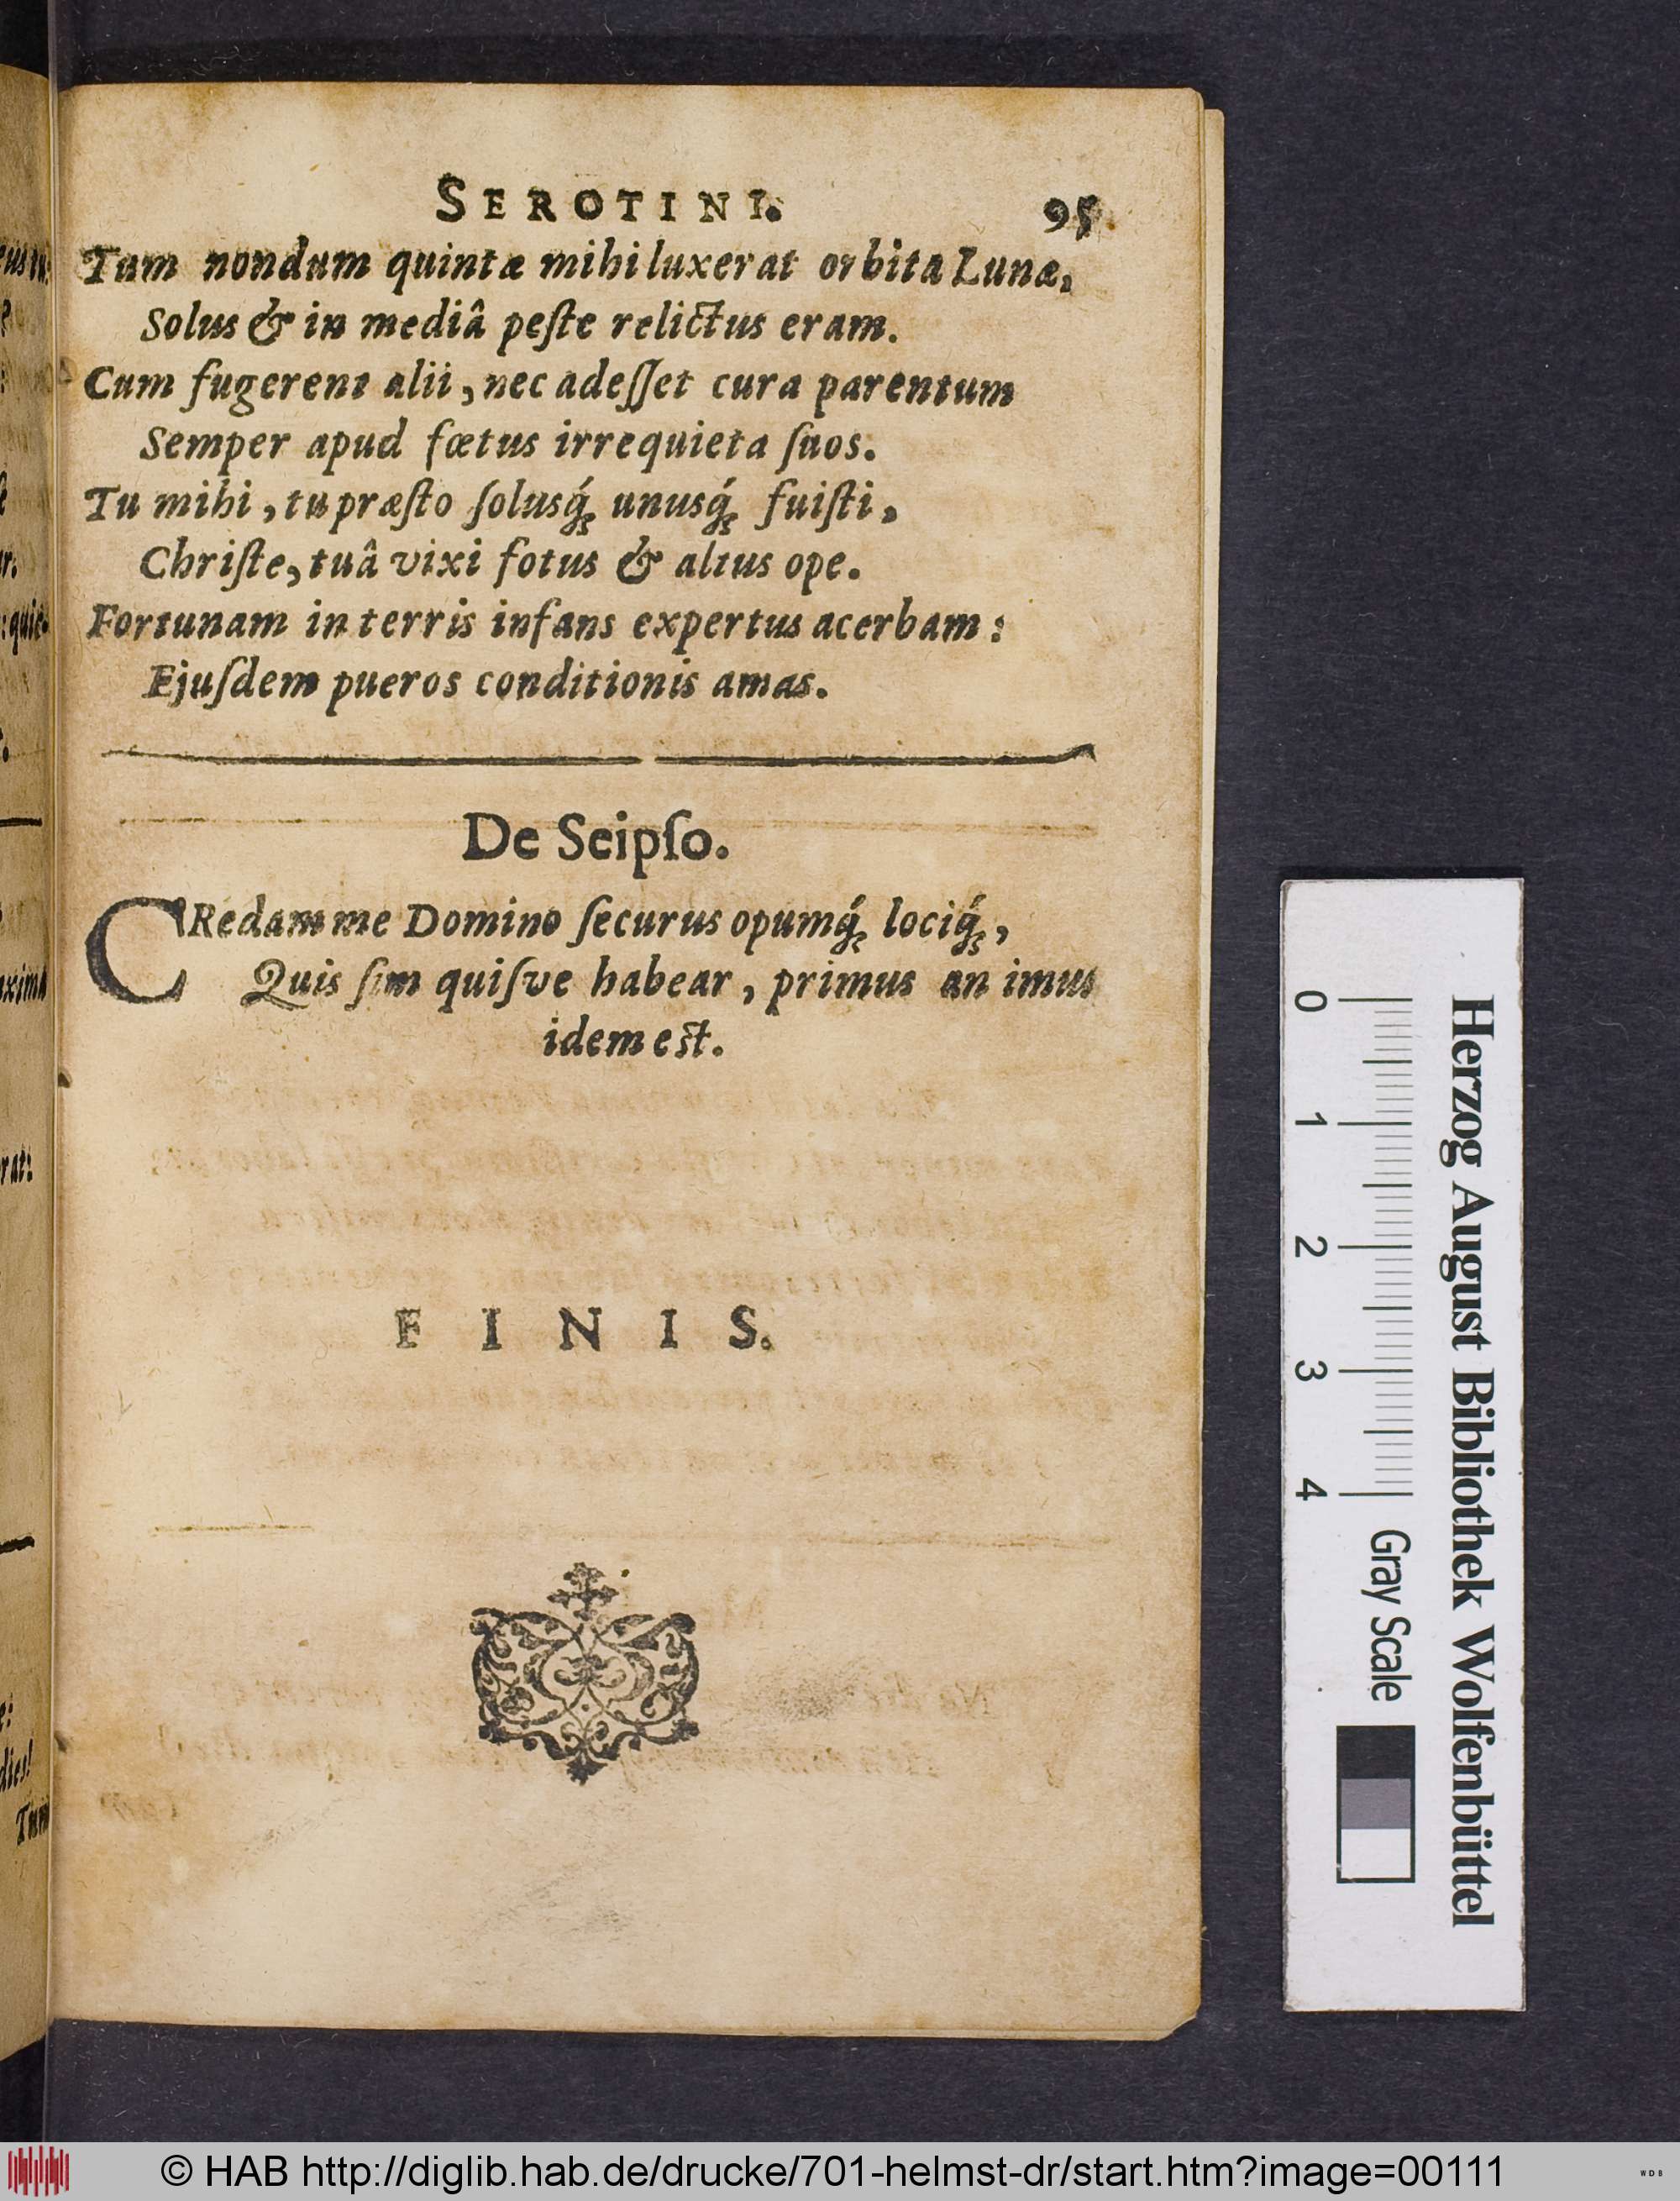 SEROTINI. 95.
Tum nondum quintæ mihi luxerat orbita Lunæ,
Solus & in mediâ peſte relictus eram.
Cum fugerent alii, nec adeſſet cura parentum
Semper apud fœtus irrequieta ſuos.
Tu mihi, tu præſto ſolusq́; unusq́; fuiſti,
Chriſte, tuâ vixi fotus & altus ope.
Fortunam in terris infans expertus acerbam:
Ejuſdem pueros conditionis amas.
De Seipſo.
CRedam me Domino ſecurus opumq́; lociq́;,
Quis ſim quiſve habear, primus an imus
idem eſt.
FINIS.
Herzog August Bibliothek Wolfenbüttel
0 1 2 3 4 Gray Scale
© HAB http://diglib.hab.de/drucke/701-helmst-dr/start.htm?image=00111
WDB